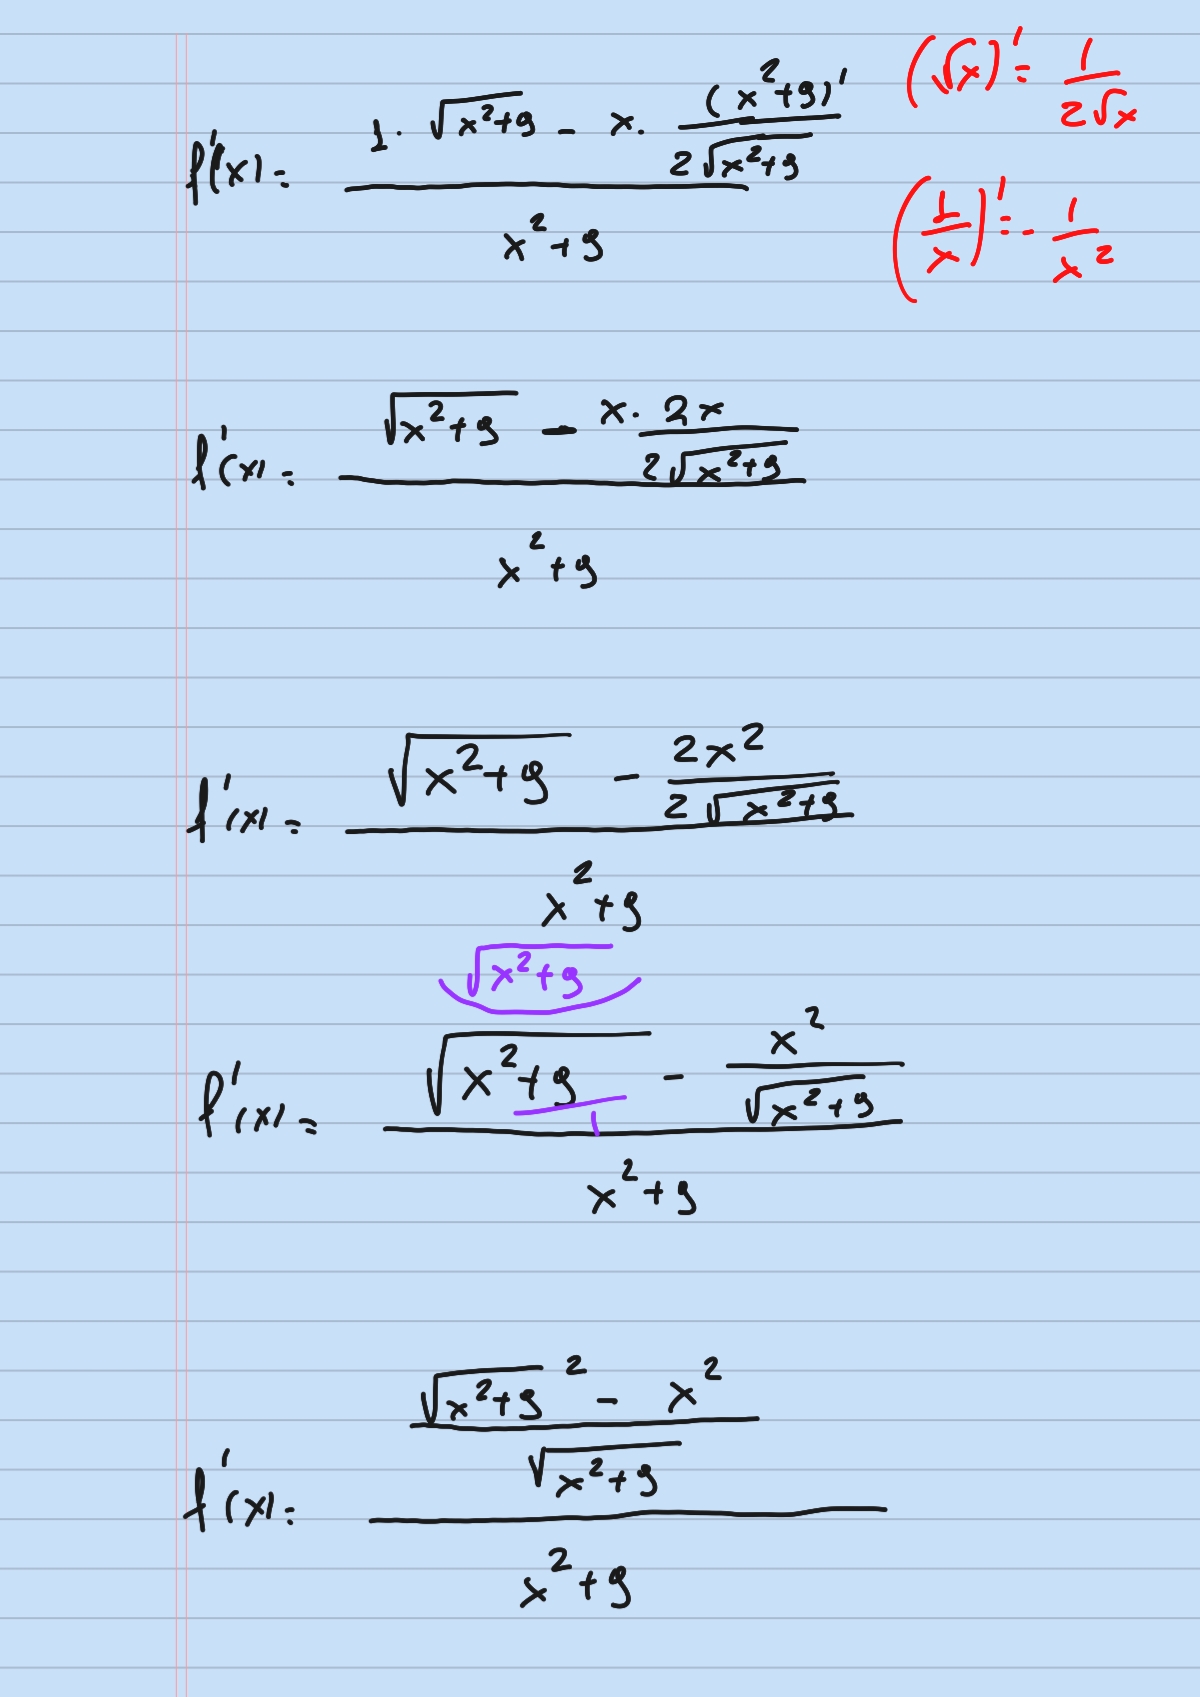 f'(x) = (1 · √(x²+9) − x · (x²+9)' / (2√(x²+9))) / (x²+9)
(√x)' = 1 / (2√x)
(1/x)' = − 1/x²
f'(x) = (√(x²+9) − x · 2x / (2√(x²+9))) / (x²+9)
f'(x) = (√(x²+9) − 2x² / (2√(x²+9))) / (x²+9)
√(x²+9)
f'(x) = (√(x²+9) / 1 − x² / √(x²+9)) / (x²+9)
f'(x) = ((√(x²+9)² − x²) / √(x²+9)) / (x²+9)